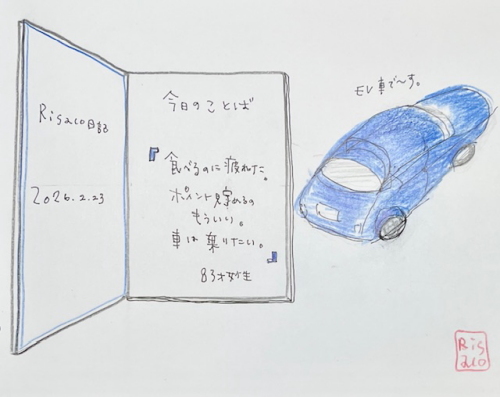 Risaco日記
2026.2.23
今日のことば
『
食べるのに疲れた。
ポイント貯めるの
もういい。
車は乗りたい。
』
83才女性
EV車で〜す。
Ris
aco